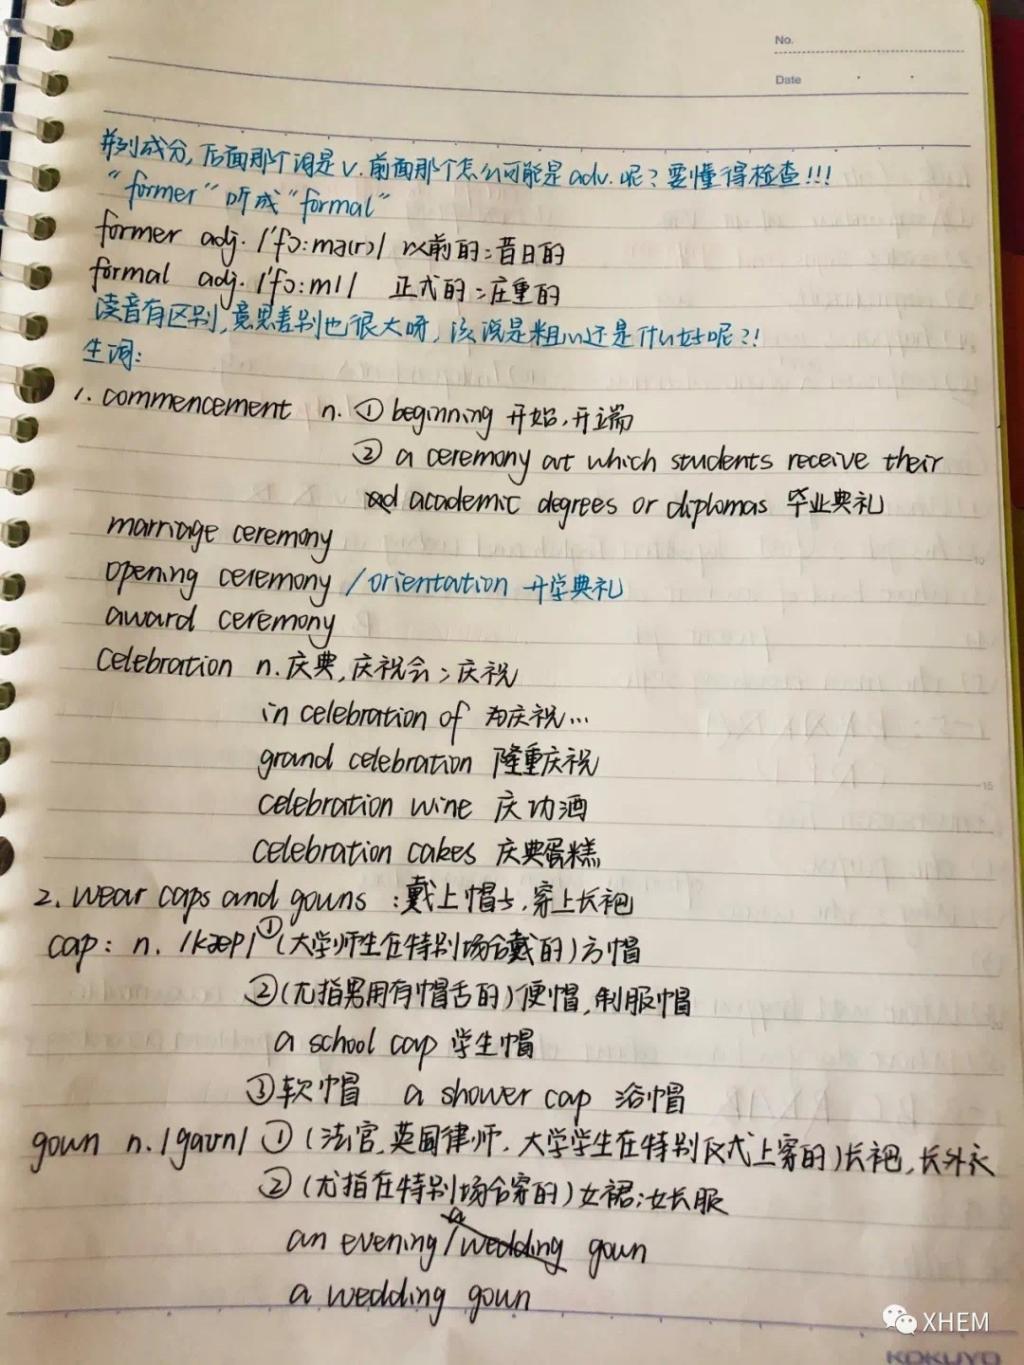 No.
Date
并列成分,后面那个词是v.前面那个怎么可能是adv.呢?要懂得检查!!!
"former"听成"formal"
former adj. /'fɔ:mə(r)/ 以前的;昔日的
formal adj. /'fɔ:ml/ 正式的;庄重的
读音有区别,意思差别也很大呀,该说是粗心还是什么好呢?!
生词:
1. commencement n. ① beginning 开始,开端
② a ceremony at which students receive their
academic degrees or diplomas 毕业典礼
marriage ceremony
opening ceremony /orientation 开学典礼
award ceremony
celebration n. 庆典,庆祝会;庆祝
in celebration of 为庆祝…
grand celebration 隆重庆祝
celebration wine 庆功酒
celebration cakes 庆典蛋糕
2. wear caps and gowns :戴上帽子,穿上长袍
cap: n. /kæp/ ①(大学师生在特别场合戴的)方帽
②(尤指男用有帽舌的)便帽,制服帽
a school cap 学生帽
③软帽 a shower cap 浴帽
gown n. /gaʊn/ ①(法官,英国律师,大学学生在特别仪式上穿的)长袍,长外衣
②(尤指在特别场合穿的)女裙;女长服
an evening/wedding gown
a wedding gown
XHEM
KOKUYO